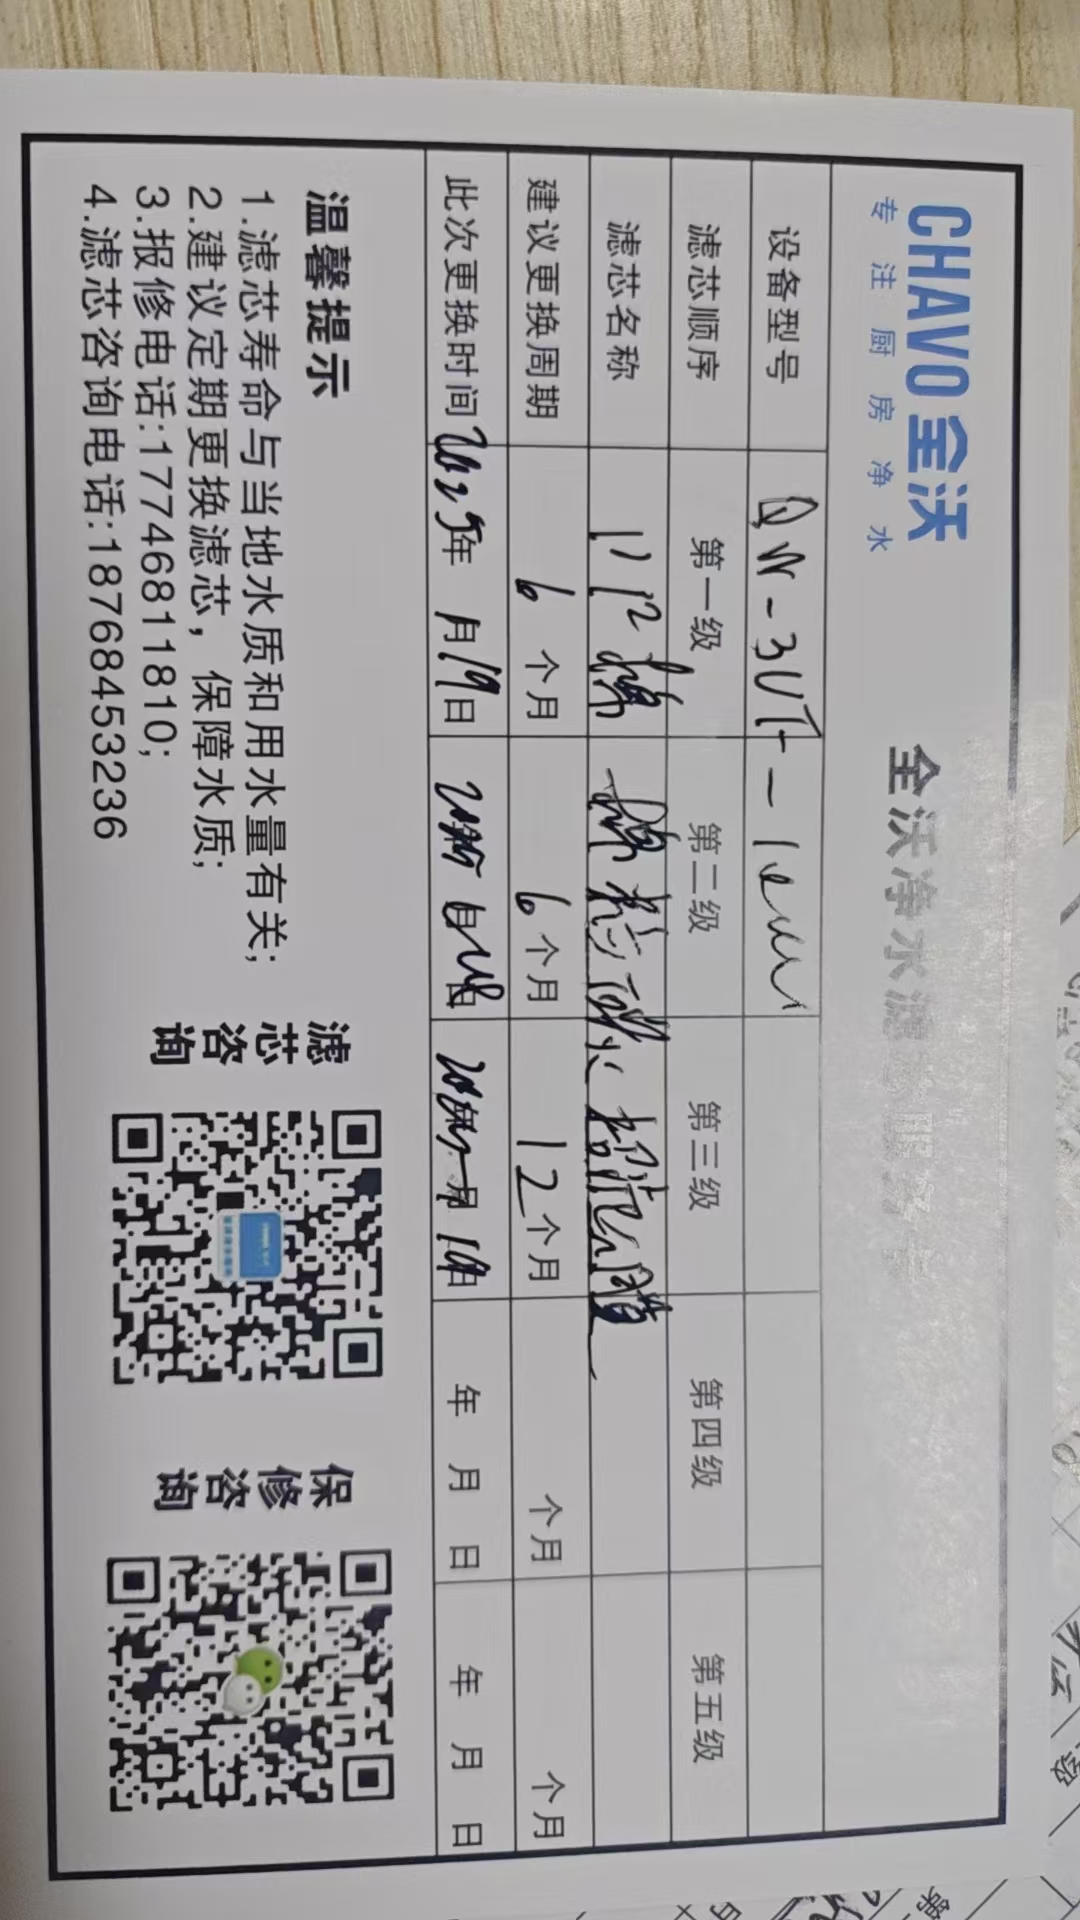 CHAVO 全沃
专注厨房净水
全沃净水滤芯服务卡
设备型号 QW-3UF-
滤芯顺序 第一级 第二级 第三级 第四级 第五级
滤芯名称 PP棉 超滤膜
建议更换周期 6个月 6个月 12个月 个月 个月
此次更换时间 2025年 月19日 年 月 日 年 月 日
温馨提示
1.滤芯寿命与当地水质和用水量有关;
2.建议定期更换滤芯，保障水质;
3.报修电话:17746811810;
4.滤芯咨询电话:18768453236
滤芯咨询
保修咨询